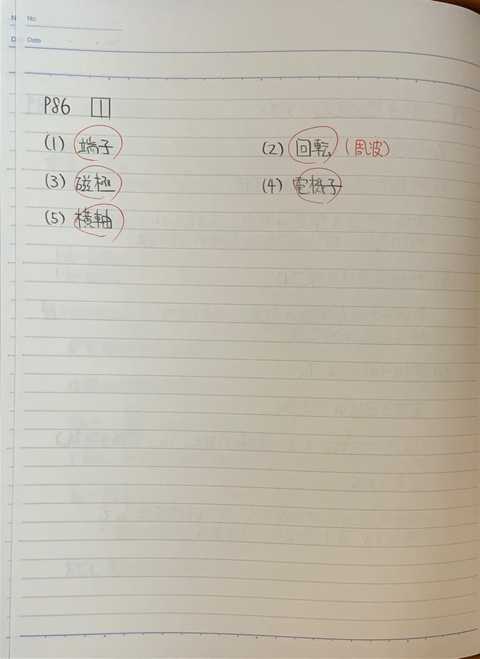 No.
Date
P86 1
(1) 端子 (2) 回転 (周波)
(3) 磁極 (4) 電機子
(5) 横軸